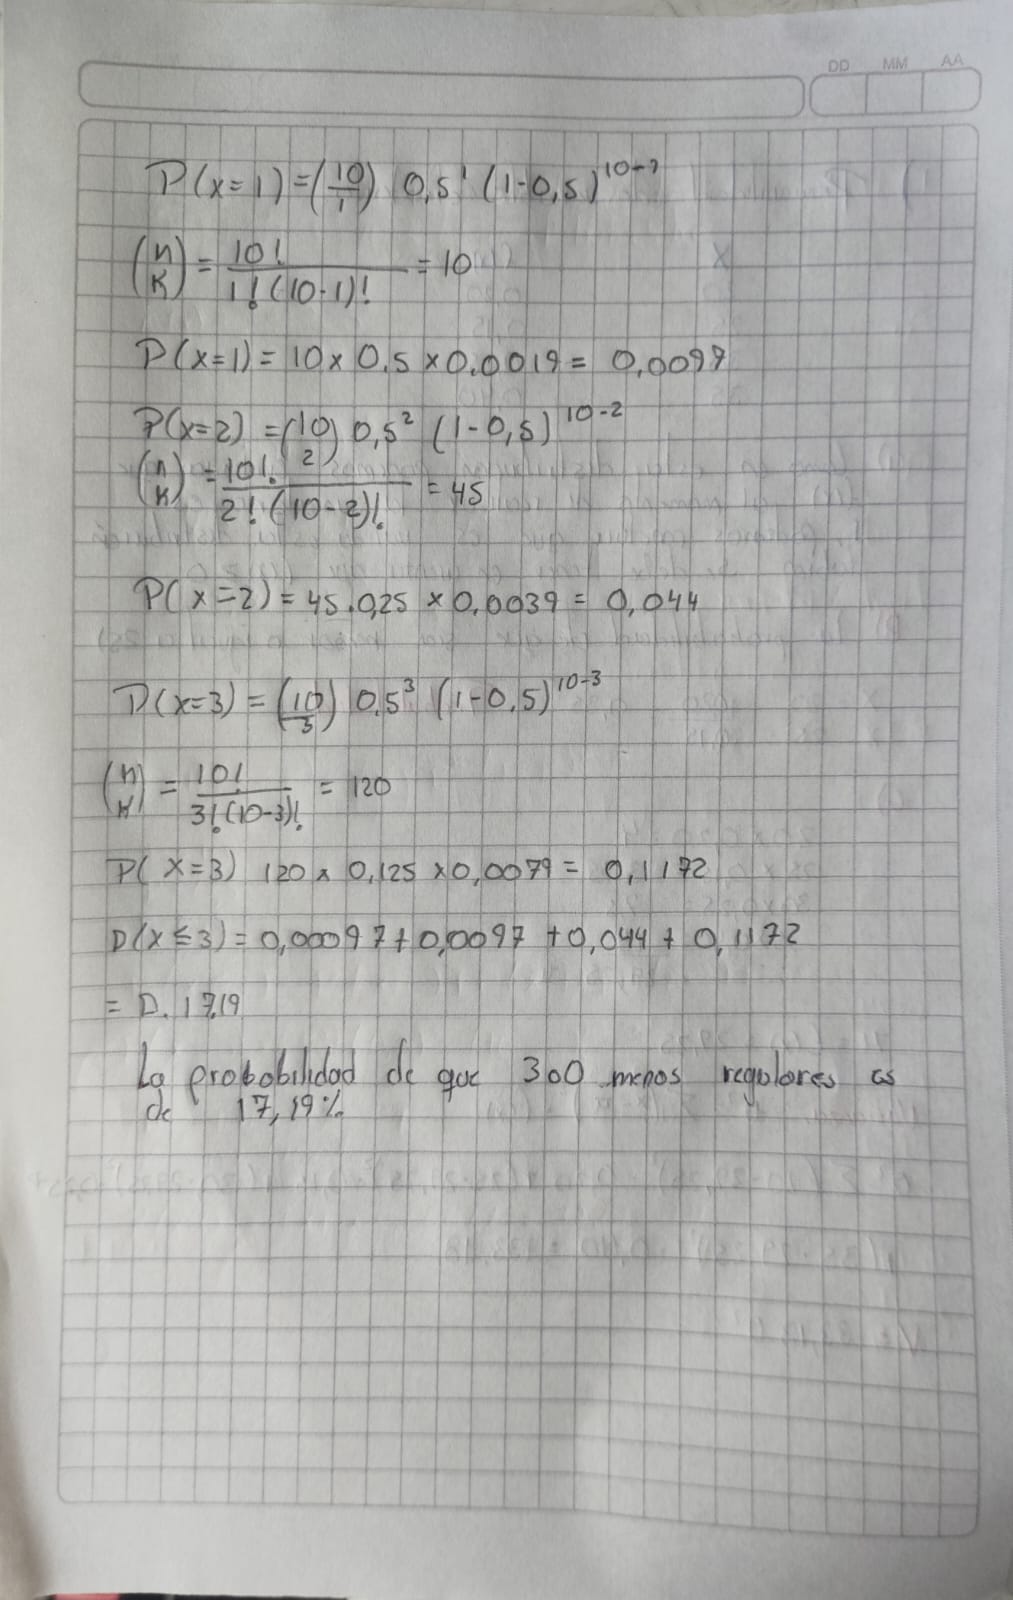 DD MM AA
P(x=1)=(10/1) 0,5¹ (1-0,5)^10-1
(n K) = 10! / 1!(10-1)! = 10
P(x=1) = 10 x 0,5 x 0,0019 = 0,0097
P(x=2) = (10 2) 0,5² (1-0,5)^10-2
(n K) = 10! / 2!(10-2)! = 45
P(x=2) = 45.0,25 x 0,0039 = 0,044
P(x=3) = (10/3) 0,5³ (1-0,5)^10-3
(n K) = 10! / 3!(10-3)! = 120
P(x=3) 120 x 0,125 x 0,0079 = 0,1172
P(x≤3) = 0,00097+0,0097 +0,044 + 0,1172
= 0.1719
La probabilidad de que 3 o menos regulares es
de 17,19%